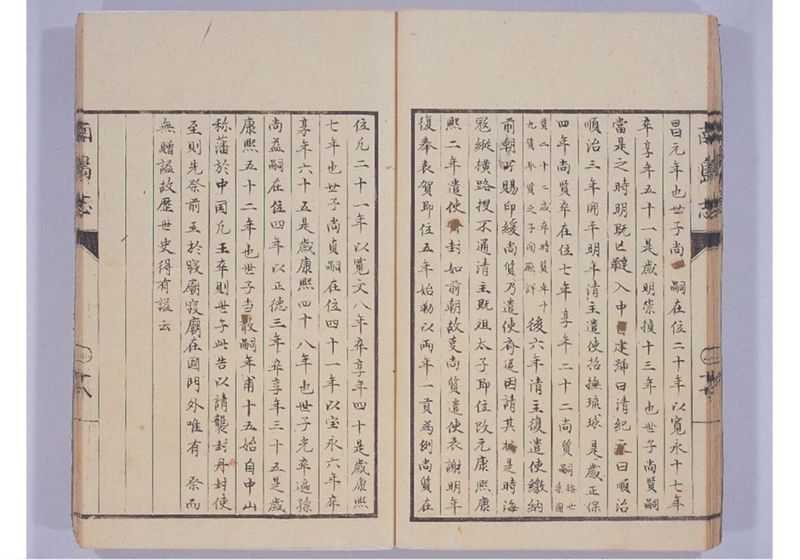 昌元年也世子尚嗣在位二十年以寬永十七年
卒享年五十一是歲明崇禎十三年也世子尚賢嗣
當是之時明既亡韃入中建號曰清紀元曰順治
順治三年閩平明年清主遣使招撫琉球是歲正保
四年尚賢卒在位七年享年二十二尚質嗣
賢二十二歲卒時質年十
九質
後六年清主復遣使繳納
前朝所賜印綬尚質乃遣使齎送因請其是時海
寇縱橫路梗不通清主既殂太子即位改元康熙康
熙二年遣使封如前朝故尚質遣使表謝明年
復奉表賀即位五年始勅以兩年一貢為例尚質在
南島志
位凡二十一年以寬文八年卒享年四十是歲康熙
七年也世子尚貞嗣在位四十一年以宝永六年卒
享年六十五是歲康熙四十八年也世子光卒適孫
尚益嗣在位四年以正德三年卒享年三十五是歲
康熙五十二年也世子尚敬嗣年甫十五始自中山
称藩於中国凡王卒則世子告以請襲封冊封使
至則先祭前王於寢廟寢廟在國門外唯有祭而
無贈謚故歷世史得有謚云
南島志